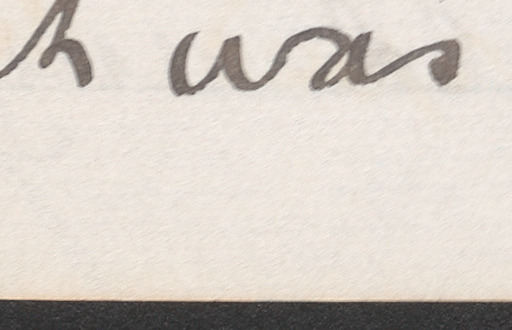 h was